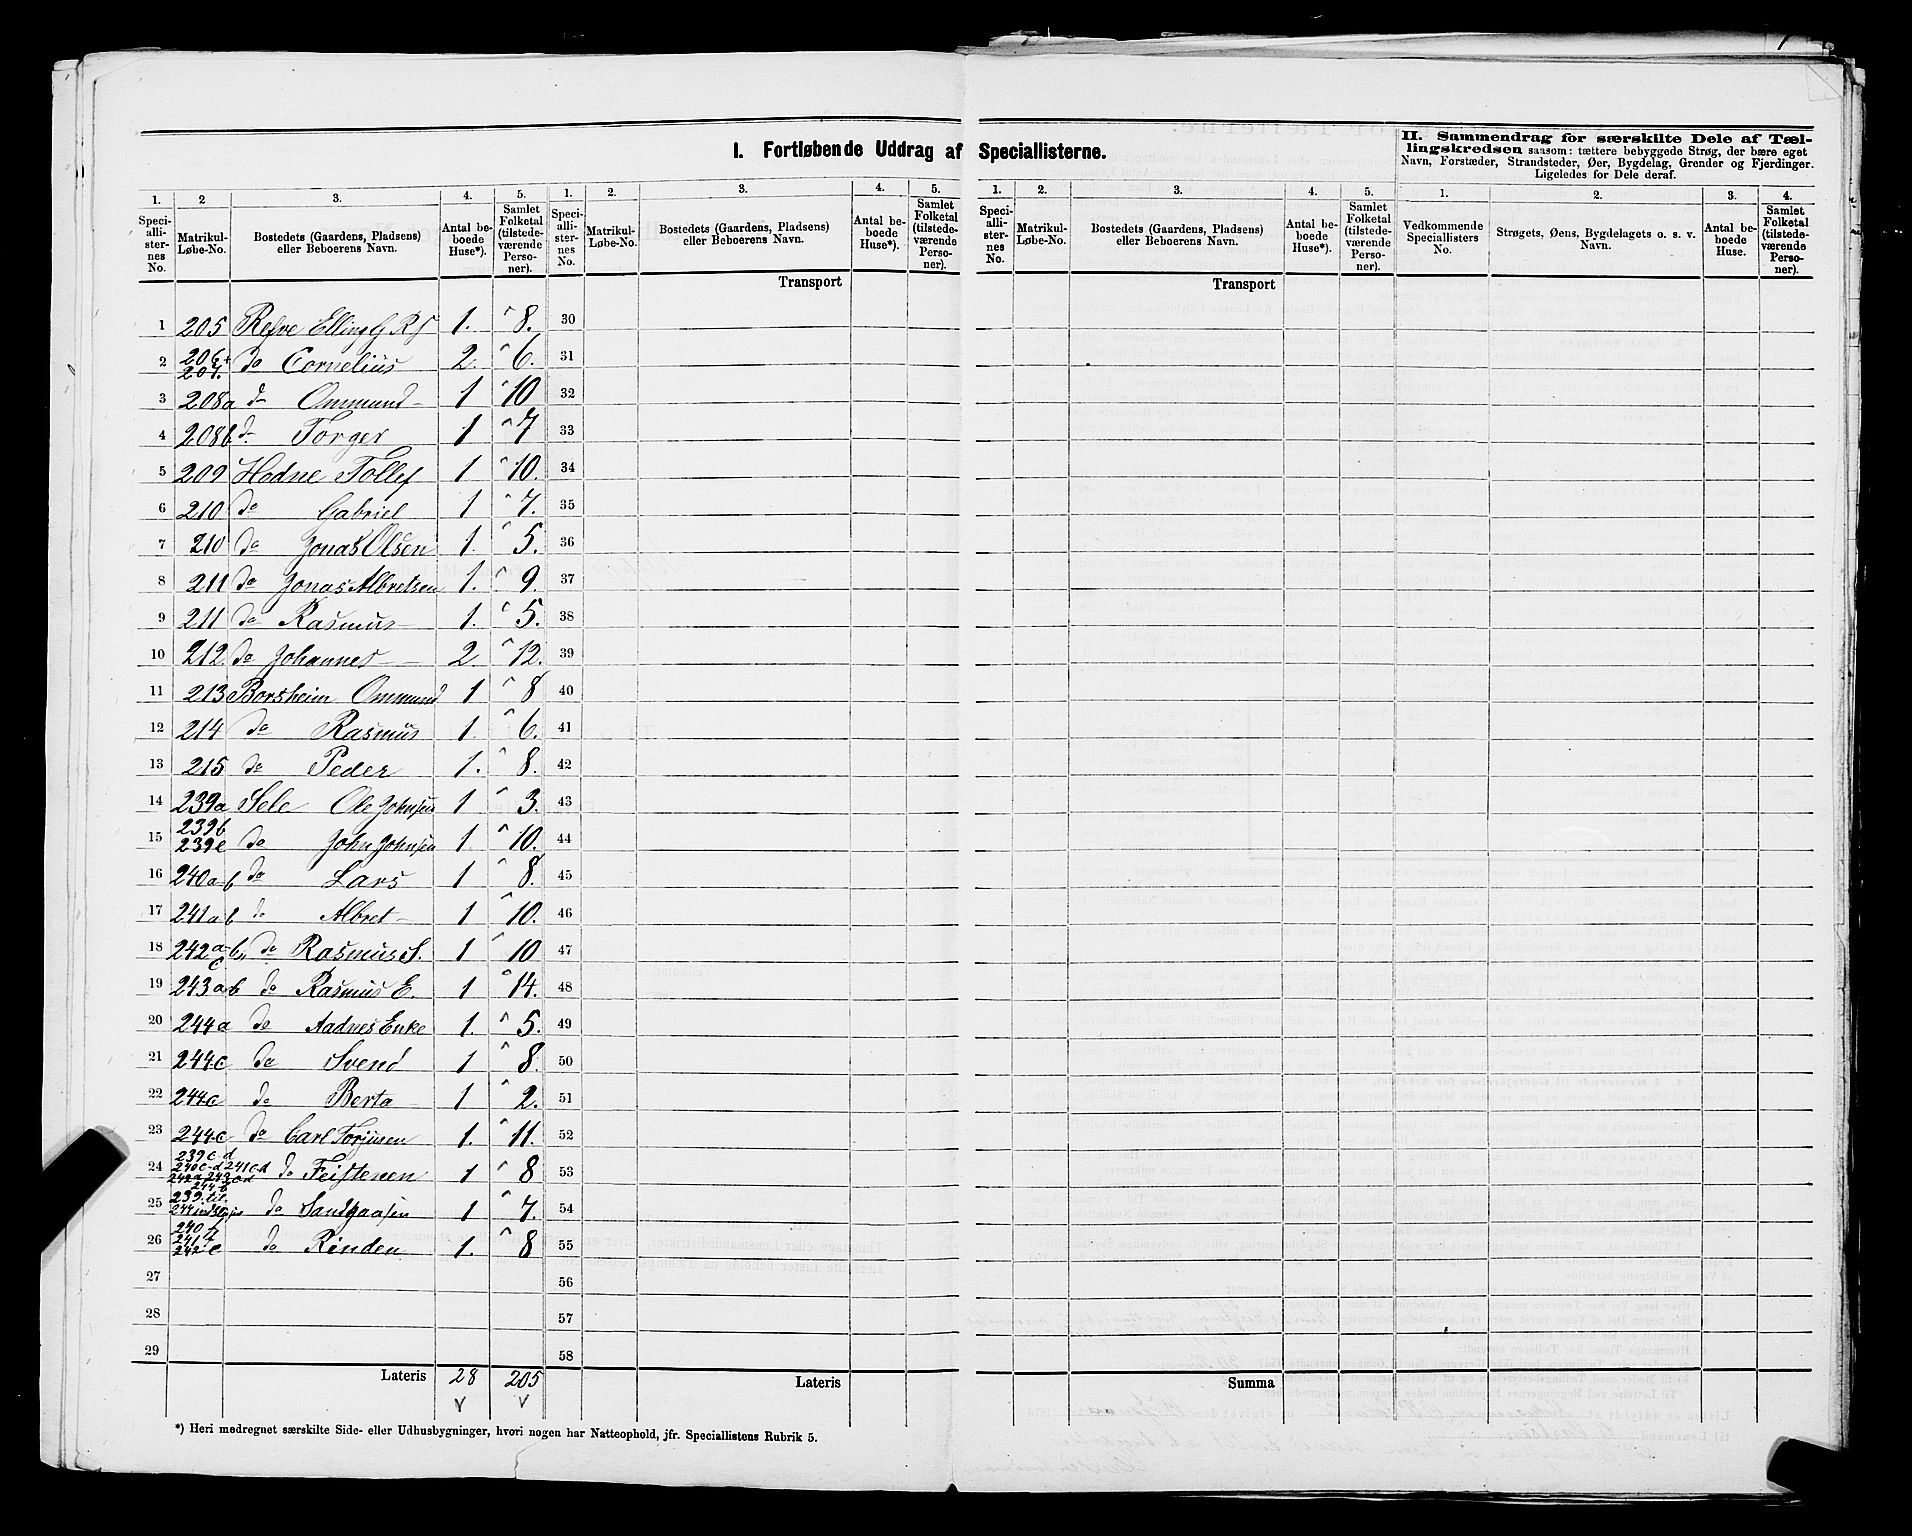 I. Fortløbende Uddrag af Speciallisterne.
II. Sammendrag for særskilte Dele af Tæl-
lingskredsen saasom: tættere bebyggede Strøg, der bære eget
Navn, Forstæder, Strandsteder, Øer, Bygdelag, Grender og Fjerdinger.
Ligeledes for Dele deraf.
1. 2 3. 4. 5. 1. 2. 3. 4. 5. 1. 2. 3. 4. 5. 1. 2. 3. 4.
Speci-
alli-
ster-
nes
No.
Matrikul-
Løbe-No.
Bostedets (Gaardens, Pladsens)
eller Beboerens Navn.
Antal be-
boede
Huse*).
Samlet
Folketal
(tilstede-
værende
Perso-
ner).
Speci-
alli-
ster-
nes
No.
Matrikul-
Løbe-No.
Bostedets (Gaardens, Pladsens)
eller Beboerens Navn.
Antal be-
boede
Huse*).
Samlet
Folketal
(tilstede-
værende
Perso-
ner).
Speci-
alli-
ster-
nes
No.
Matrikul-
Løbe-No.
Bostedets (Gaardens, Pladsens)
eller Beboerens Navn.
Antal be-
boede
Huse*).
Samlet
Folketal
(tilstede-
værende
Perso-
ner).
Vedkommende
Speciallisters
No.
Strøgets, Øens, Bygdelagets o. s. v.
Navn.
Antal be-
boede
Huse.
Samlet
Folketal
(tilstede-
værende
Perso-
ner).
Transport Transport
1 205 Refve Elling 1. 8. 30
2 206+ 207. do Cornelius 2. 6. 31
3 208a do Ommund 1 10 32
4 208b do Torger 1 7 33
5 209 Hodne Tollef 1 10. 34
6 210 do Gabriel 1 7. 35
7 210 do Jonas Olsen 1. 5. 36
8 211 do Jonas Albretsen 1. 9. 37
9 211 do Rasmus 1. 5. 38
10 212. do Johannes 2 12. 39
11 213 Borsheim Ommund 1 8 40
12 214 do Rasmus 1. 6. 41
13 215 do Peder 1. 8. 42
14 239a Sele Ole Johnsen 1 3. 43
15 239b 239e do John Johnsen 1. 10. 44
16 240a-b do Lars 1 8. 45
17 241a b do Albret 1 10. 46
18 242a-b c do Rasmus S. 1 10 47
19 243a-b do Rasmus E. 1 14. 48
20 244a do Aadnes Enke 1. 5. 49
21 244c do Svend 1 8. 50
22 244c do Berta 1 2. 51
23 244c do Carl Torjusen 1. 11. 52
24 239c-d 240c-d 241c-d 244b do Feistenen 1 8 53
25 239. til. 244 do Sandgaasen 1 7. 54
26 240 f 241 f 242 e do Rinden 1. 8 55
27 56
28 57
29 58
Lateris 28 205 Lateris Summa
*) Heri medregnet særskilte Side- eller Udhusbygninger, hvori nogen har Natteophold, jfr. Speciallistens Rubrik 5.